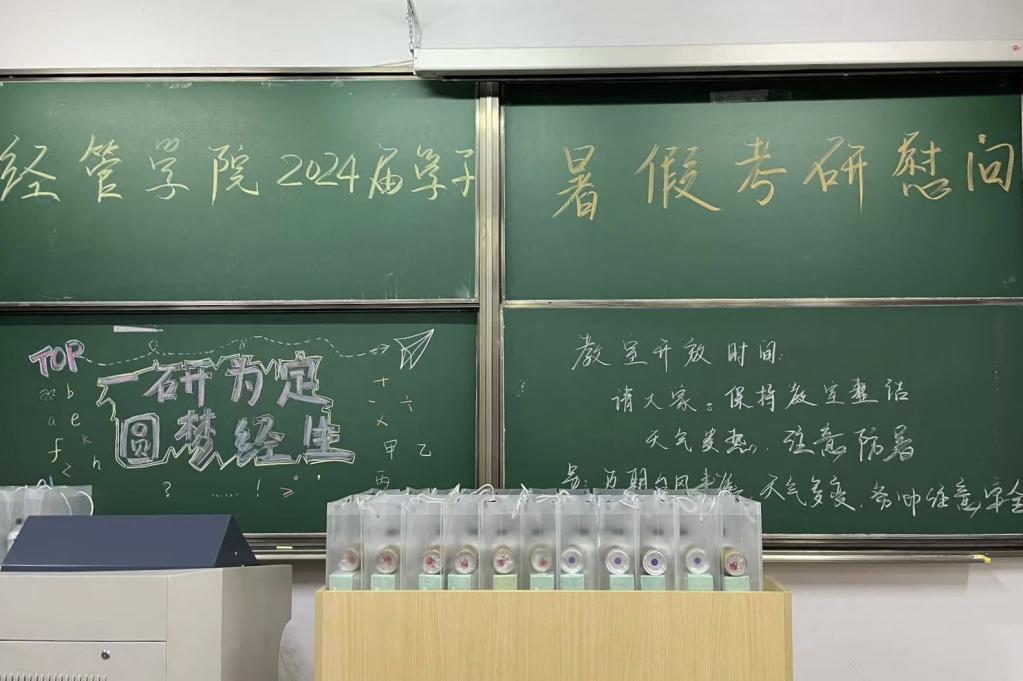 经管学院2024届学子
暑假考研慰问
TOP
一研为定
圆梦经生
b
a e
f k
z h
+
-
÷
×
甲 乙
丙
? ...... ! ≥
教室开放时间:
请大家。保持教室整洁
天气炎热,注意防暑
另:近期台风 天气多变,务必注意安全